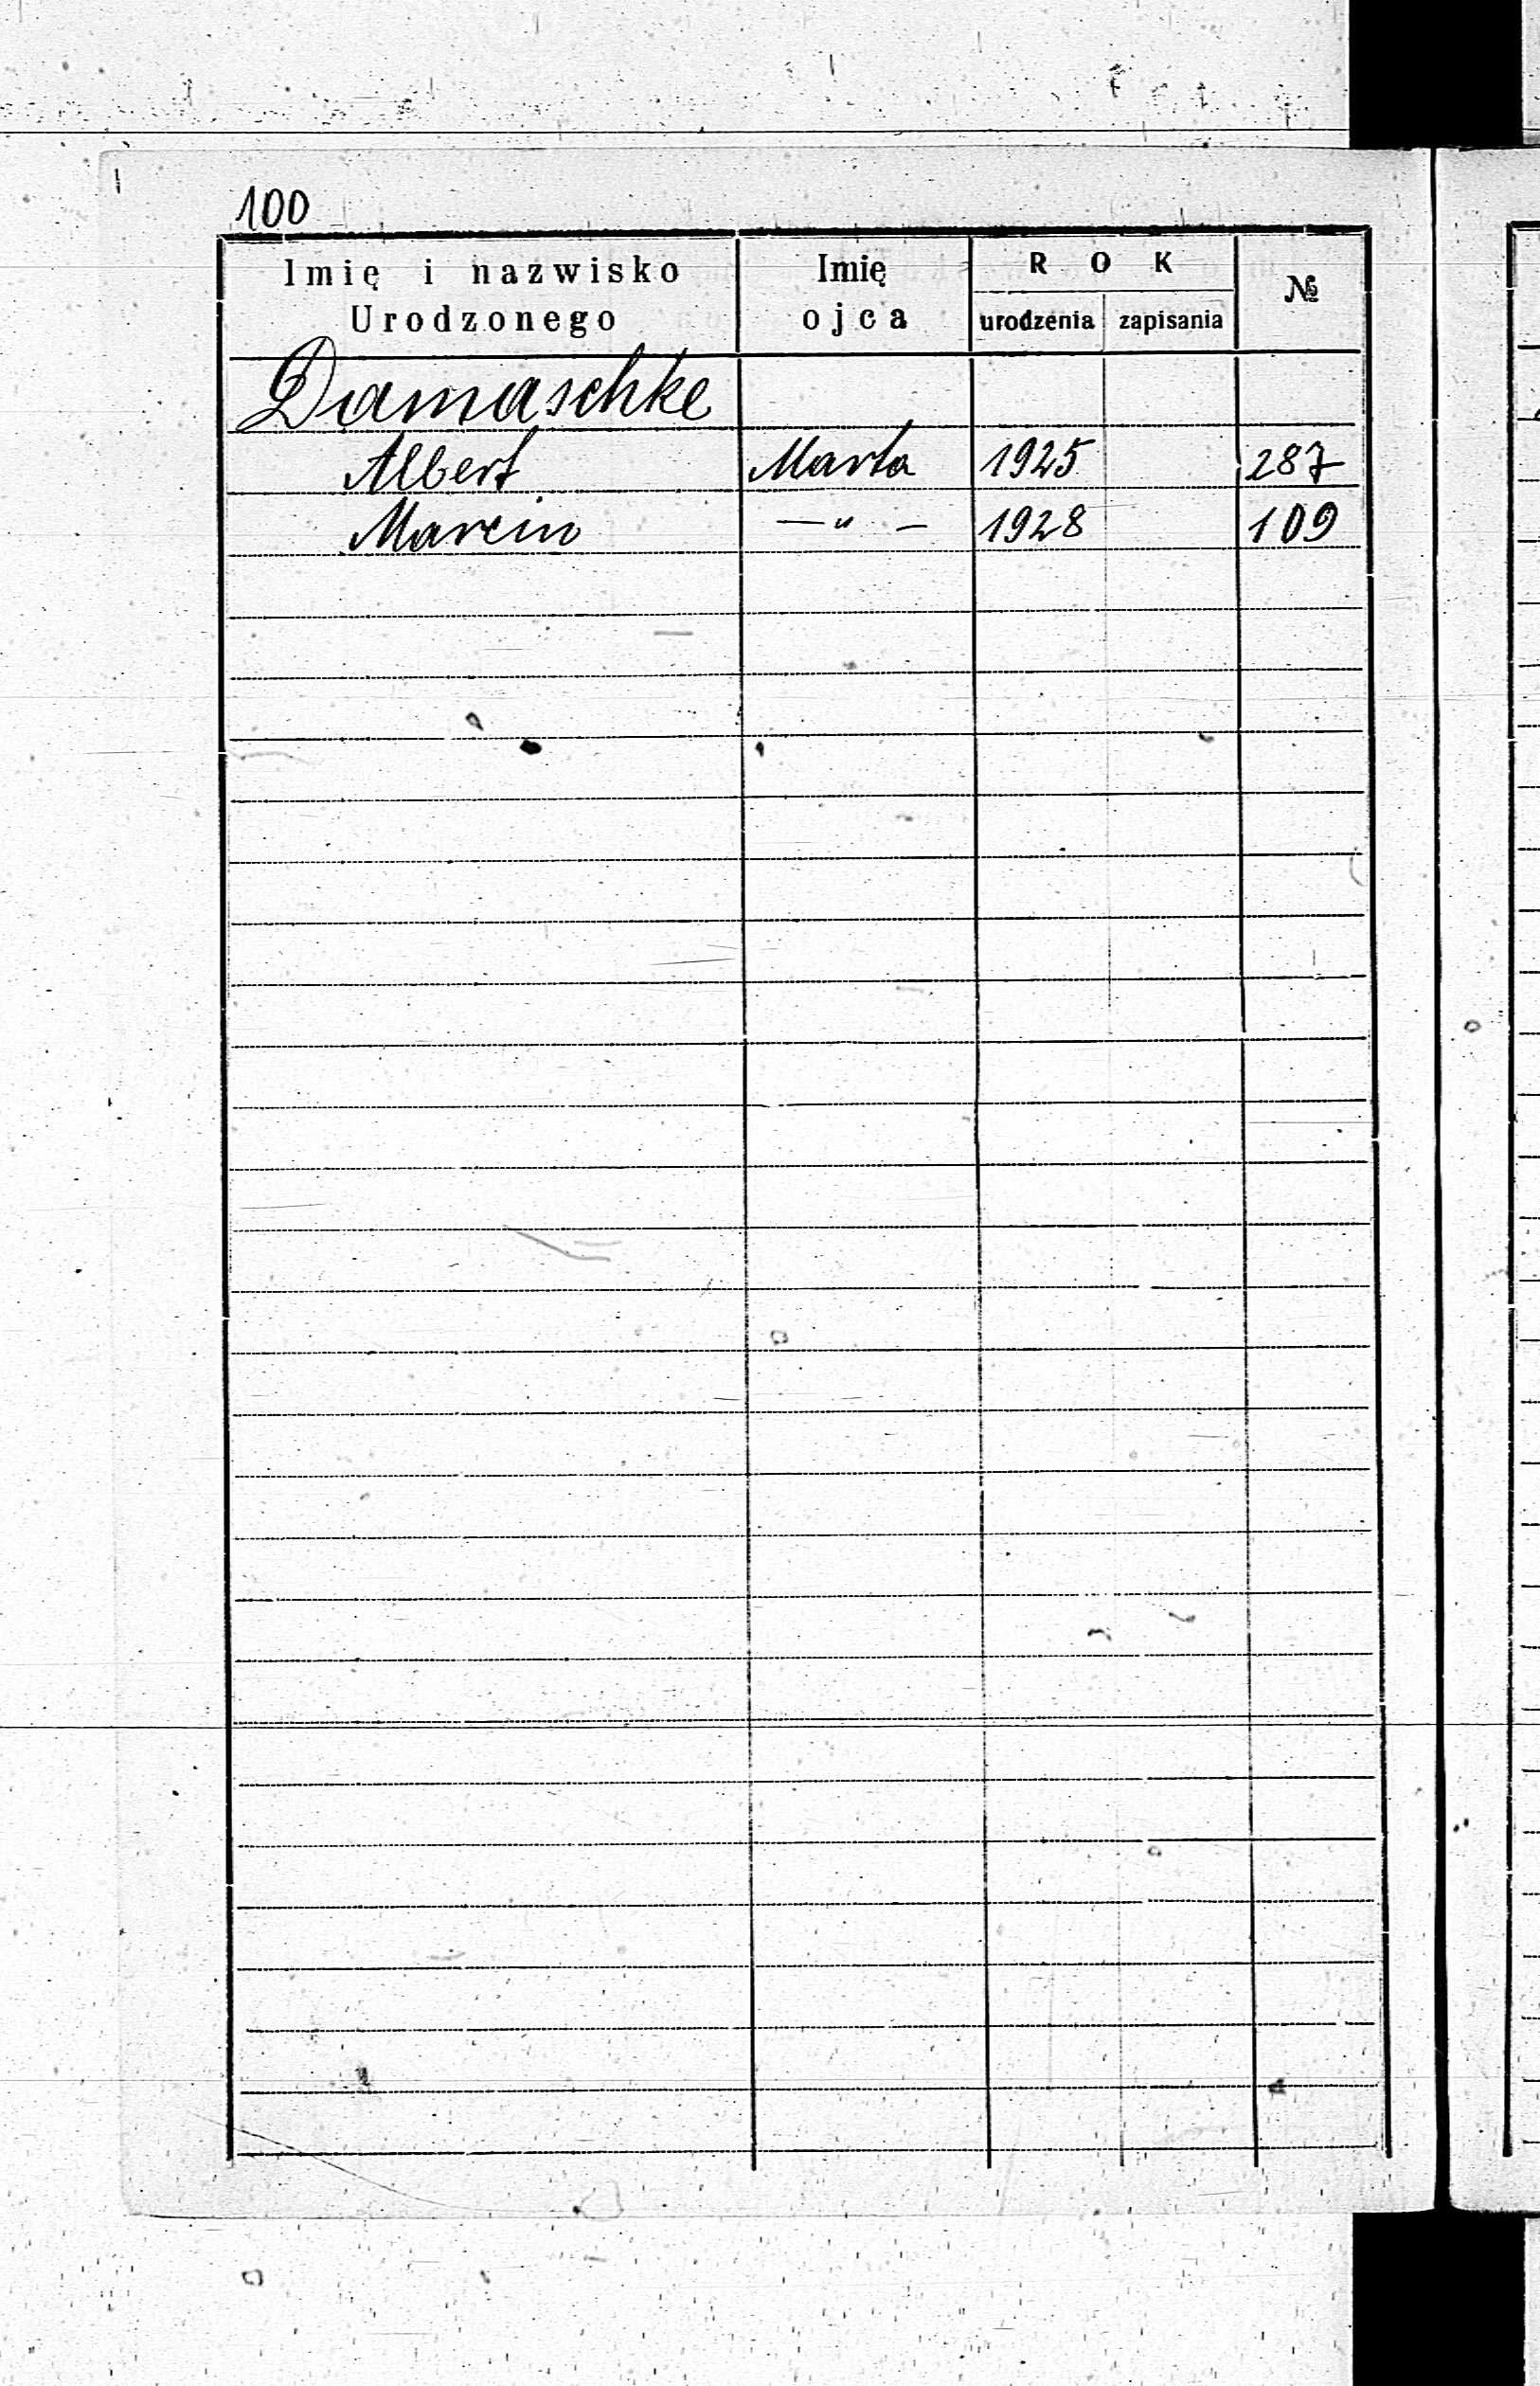 100
Imię i nazwisko Urodzonego Imię ojca ROK urodzenia zapisania №
Damaschke
Albert Marta 1925 287
Marcin —"— 1928 109